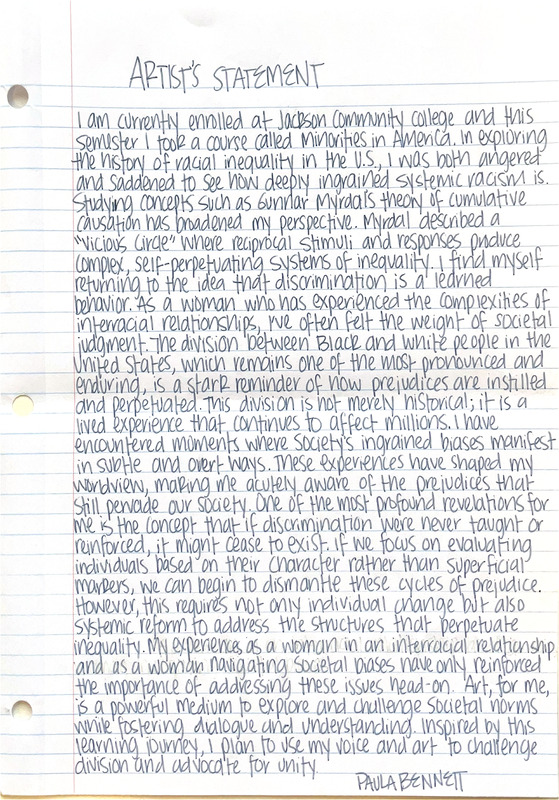 ARTIST'S STATEMENT
I am currently enrolled at Jackson Community college and this
semester I took a course called Minorities in America. In exploring
the history of racial inequality in the U.S., I was both angered
and saddened to see how deeply ingrained systemic racism is.
Studying concepts such as Gunnar Myrdal's theory of cumulative
causation has broadened my perspective. Myrdal described a
"vicious circle" where reciprocal stimuli and responses produce
complex, self-perpetuating systems of inequality. I find myself
returning to the idea that discrimination is a learned
behavior. As a woman who has experienced the complexities of
interracial relationships, I've often felt the weight of societal
judgment. The division between Black and white people in the
United States, which remains one of the most pronounced and
enduring, is a stark reminder of how prejudices are instilled
and perpetuated. This division is not merely historical; it is a
lived experience that continues to affect millions. I have
encountered moments where society's ingrained biases manifest
in subtle and overt ways. These experiences have shaped my
worldview, making me acutely aware of the prejudices that
still pervade our society. One of the most profound revelations for
me is the concept that if discrimination were never taught or
reinforced, it might cease to exist. If we focus on evaluating
individuals based on their character rather than superficial
markers, we can begin to dismantle these cycles of prejudice.
However, this requires not only individual change but also
systemic reform to address the structures that perpetuate
inequality. My experiences as a woman in an interracial relationship
and as a woman navigating societal biases have only reinforced
the importance of addressing these issues head-on. Art, for me,
is a powerful medium to explore and challenge societal norms
while fostering dialogue and understanding. Inspired by this
learning journey, I plan to use my voice and art to challenge
division and advocate for unity.
PAULA BENNETT